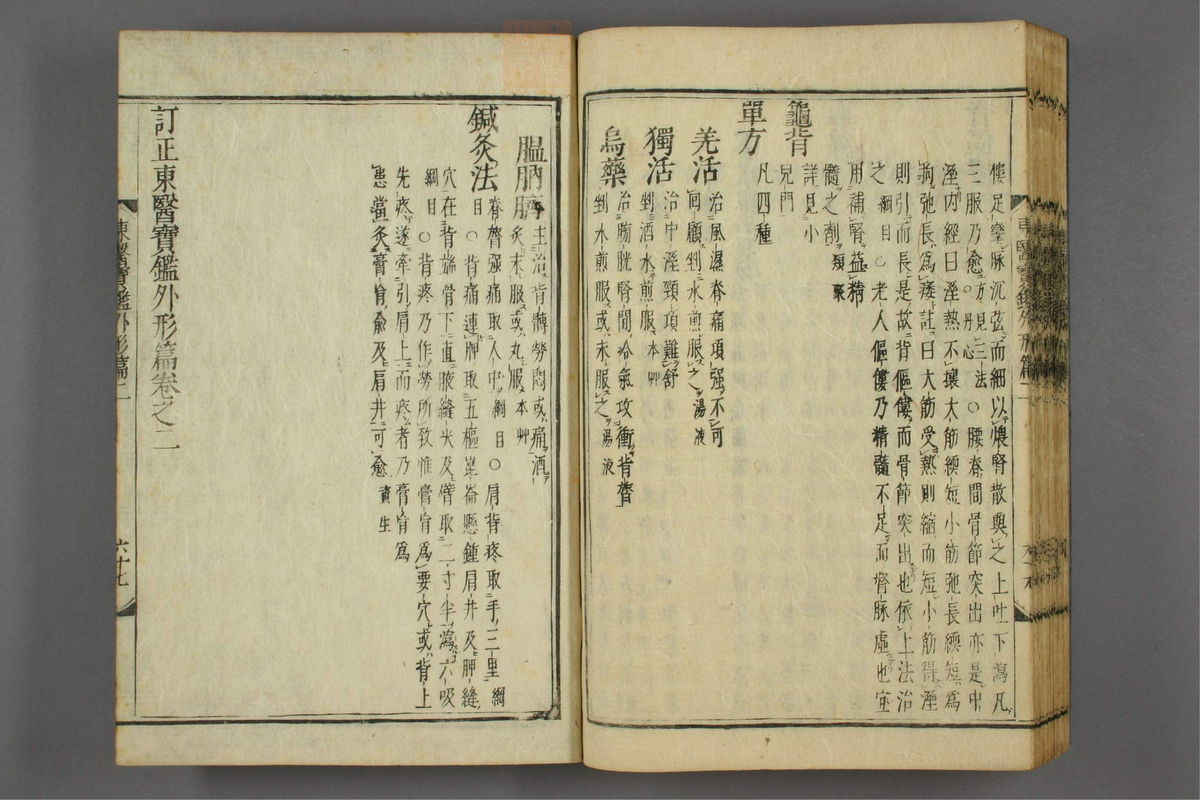 僂足攣脉沉弦而細以煨腎散與之上吐下瀉凡
三服乃愈○丹心 方見三法 ○腰脊間骨節突出亦是中
溼內經曰溼熱不攘大筋緛短小筋弛長緛短爲
拘弛長爲痿註曰大筋受熱則縮而短小筋得溼
則引而長是故背傴僂而骨節突出也依上法治
之 綱目 ○老人傴僂乃精髓不足而督脉虛也宜
用補腎益精
髓之劑 類聚
龜背
詳見小
兒門
單方
凡四種
羌活
治風濕脊痛項强不可
回顧剉水煎服之 湯液
獨活
治中溼頸項難舒
剉酒水煎服 本艸
烏藥
治膀胱腎間冷氣攻衝背膂
剉水煎服或末服之 湯液
東醫寶鑑外形篇二
膃肭臍
主治背髆勞悶或痛酒
炙末服或丸服 本艸
鍼灸法
脊膂强痛取人中 綱目 ○肩背疼取手三里 綱
目 ○背痛連胛取五樞崑崙懸鍾肩井及胛縫
穴在背端骨下直腋縫尖及臂取二寸半瀉六吸
綱目 ○背疼乃作勞所致惟膏肓爲要穴或背上
先疼遂牽引肩上而疼者乃膏肓爲
患當灸膏肓兪及肩井可愈 資生
訂正東醫寶鑑外形篇卷之二
東醫寶鑑外形篇二
六十七